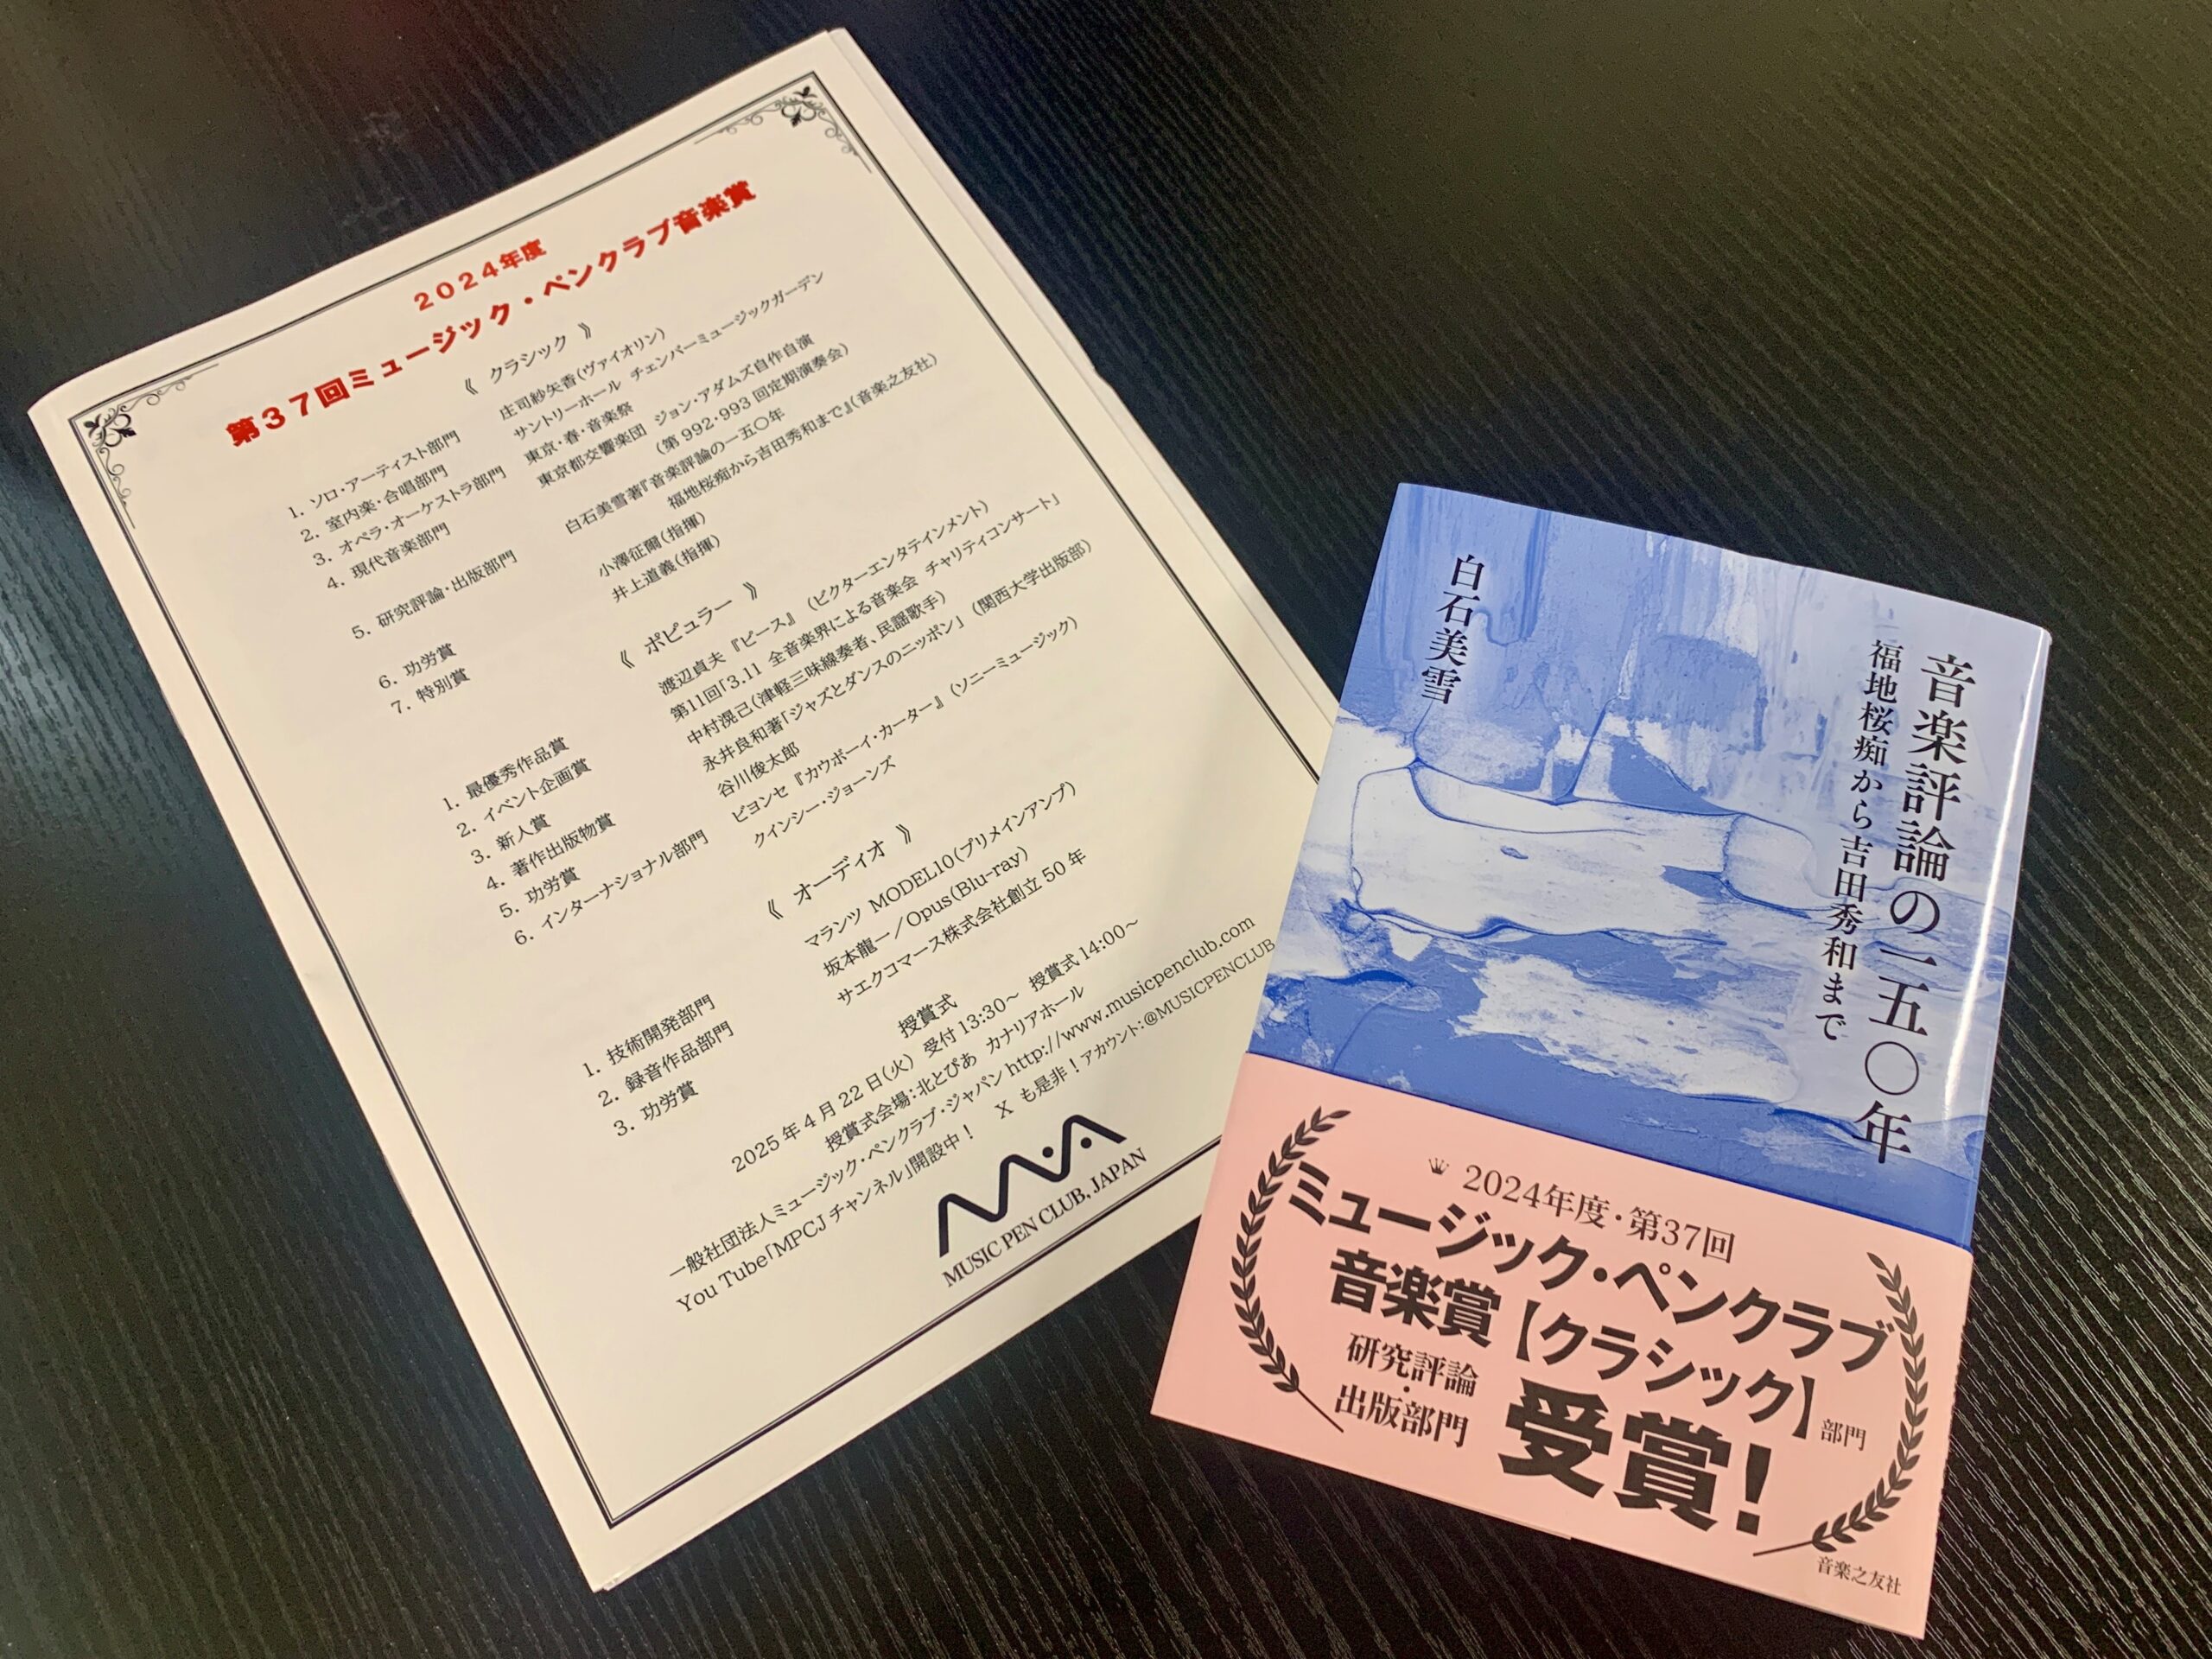 2024年度
第37回ミュージック・ペンクラブ音楽賞
《 クラシック 》
1. ソロ・アーティスト部門 庄司紗矢香(ヴァイオリン)
2. 室内楽・合唱部門 サントリーホール チェンバーミュージックガーデン
3. オペラ・オーケストラ部門 東京・春・音楽祭
4. 現代音楽部門 東京都交響楽団 ジョン・アダムズ自作自演
(第 992・993 回定期演奏会)
5. 研究評論・出版部門 白石美雪著『音楽評論の一五〇年
福地桜痴から吉田秀和まで』(音楽之友社)
6. 功労賞 小澤征爾(指揮)
7. 特別賞 井上道義(指揮)
《 ポピュラー 》
1. 最優秀作品賞 渡辺貞夫『ピース』 (ビクターエンタテインメント)
2. イベント企画賞 第11回「3.11 全音楽界による音楽会 チャリティコンサート」
3. 新人賞 中村滉己(津軽三味線奏者、民謡歌手)
4. 著作出版物賞 永井良和著「ジャズとダンスのニッポン」 (関西大学出版部)
5. 功労賞 谷川俊太郎
6. インターナショナル部門 ビヨンセ『カウボーイ・カーター』 (ソニーミュージック)
クインシー・ジョーンズ
《 オーディオ 》
1. 技術開発部門 マランツ MODEL10(プリメインアンプ)
2. 録音作品部門 坂本龍一/Opus(Blu-ray)
3. 功労賞 サエクコマース株式会社創立 50 年
授賞式
2025 年 4 月 22 日(火) 受付 13:30~ 授賞式 14:00~
授賞式会場:北とぴあ カナリアホール
一般社団法人ミュージック・ペンクラブ・ジャパン http://www.musicpenclub.com
You Tube「MPCJ チャンネル」開設中! X も是非!アカウント:@MUSICPENCLUB
MUSIC PEN CLUB, JAPAN
音楽評論の一五〇年
福地桜痴から吉田秀和まで
白石美雪
2024年度・第37回
ミュージック・ペンクラブ
音楽賞【クラシック】部門
研究評論・
出版部門
受賞!
音楽之友社